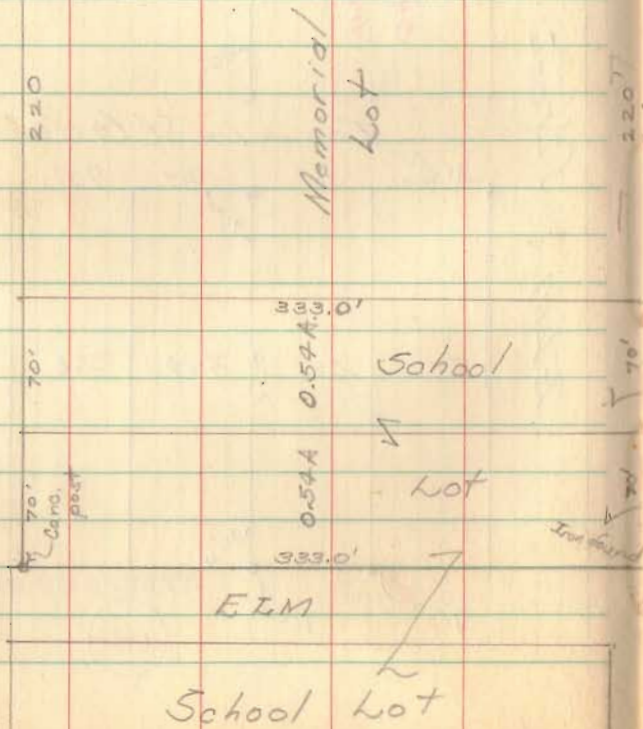 220
Memorial
Lot
220'
333.0'
70'
0.54A.
School
70'
70'
Conc.
post
0.54A
Lot
70'
Iron found
333.0'
ELM
School Lot